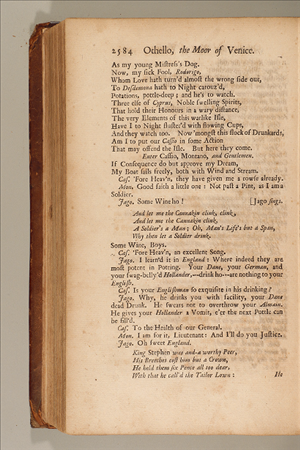 2584 Othello, the Moor of Venice.
As my young Mistress's Dog.
Now, my sick Fool, Roderigo,
Whom Love hath turn'd almost the wrong side out,
To Desdemona hath to Night carouz'd,
Potations, pottle-deep; and he's to watch.
Three else of Cyprus, Noble swelling Spirits,
That hold their Honours in a wary distance,
The very Elements of this warlike Isle,
Have I to Night fluster'd with flowing Cups,
And they watch too. Now 'mongst this flock of Drunkards,
Am I to put our Cassio in some Action
That may offend the Isle. But here they come.
Enter Cassio, Montano, and Gentlemen.
If Consequence do but approve my Dream,
My Boat sails freely, both with Wind and Stream.
Cas. 'Fore Heav'n, they have given me a rowse already.
Mon. Good faith a little one: Not past a Pint, as I am a
Soldier.
Jago. Some Wine ho! [Jago sings.
And let me the Cannakin clink, clink,
And let me the Cannakin clink,
A Soldier's a Man; Oh, Man's Life's but a Span,
Why then let a Soldier drink.
Some Wine, Boys.
Cas. 'Fore Heav'n, an excellent Song.
Jago. I learn'd it in England: Where indeed they are
most potent in Potting. Your Dane, your German, and
your swag-belly'd Hollander,—drink ho—are nothing to your
English.
Cas. Is your Englishman so exquisite in his drinking?
Jago. Why, he drinks you with facility, your Dane
dead Drunk. He sweats not to overthrow your Almain.
He gives your Hollander a Vomit, e'er the next Pottle can
be fill'd.
Cas. To the Health of our General.
Mon. I am for it, Lieutenant: And I'll do you Justice.
Jago. Oh sweet England.
King Stephen was and-a worthy Peer,
His Breeches cost him but a Crown,
He held them six Pence all too dear,
With that he call'd the Tailor Lown:
He